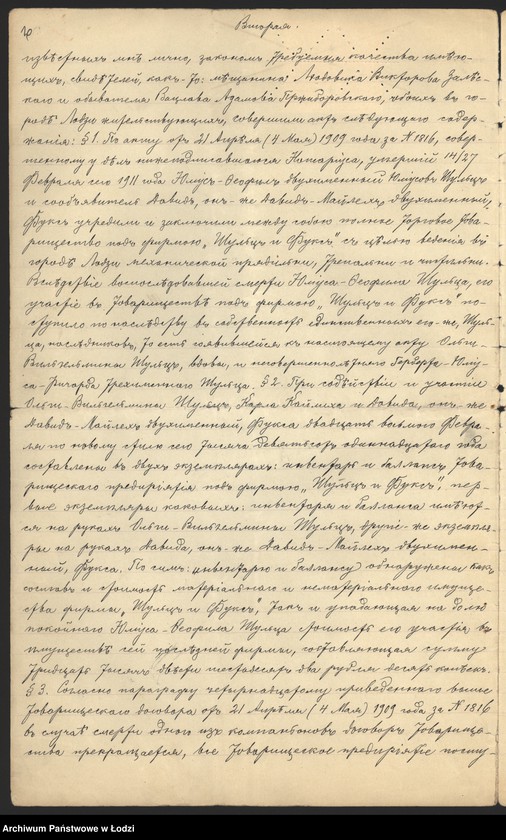 Вторая.
извѣстныхъ мнѣ лично, закономъ требуемыя качества имѣю-
щихъ, свидѣтелей, какъ-то: мѣщанина Людовика Викторова
скаго и обывателя Вацлава Адамова обоихъ въ го-
родѣ Лодзи жительствующихъ, совершили актъ слѣдующаго содер-
жанія: § 1. По акту отъ 21 Апрѣля (4 Мая) 1909 года за N 1816, совер-
шенному у дѣлъ нижеподписавшагося Нотаріуса, умершій 14/27
Февраля сего 1911 года Юліусъ-Теофилъ двухименный Юліусовъ Шульцъ
и сообъявитель Давидъ, онъ-же Давидъ-Майлехъ двухименный,
Фуксъ учредили и заключили между собою полное Торговое Това-
рищество подъ фирмою „Шульцъ и Фуксъ“ съ цѣлью веденія въ
городѣ Лодзи механической прядильни, трепальни и
Вслѣдствіе воспослѣдовавшей смерти Юліуса-Теофила Шульца, его
участіе въ Товариществѣ подъ фирмою „Шульцъ и Фуксъ“ по-
ступило по наслѣдству въ собственность единственныхъ его-же, Шуль-
ца, наслѣдниковъ, то есть соявившейся къ настоящему акту Ольги-
Вильгельмины Шульцъ, вдовы, и несовершеннолѣтняго Герберта-Юліу-
са-Рихарда трехименнаго Шульца. § 2. При содѣйствіи и участіи
Ольги-Вильгельмины Шульцъ, Карла и Давида, онъ-же
Давидъ-Майлехъ двухименный, Фукса двадцать восьмого Февра-
ля по новому стилю сего тысяча девятьсотъ одиннадцатаго года
составлены въ двухъ экземплярахъ: инвентарь и балансъ Това-
рищескаго предпріятія подъ фирмою „Шульцъ и Фуксъ“, пер-
вые экземпляры каковыхъ: инвентаря и баланса имѣют-
ся на рукахъ Ольги-Вильгельмины Шульцъ, другіе-же экземпля-
ры на рукахъ Давида, онъ-же Давидъ-Майлехъ двухимен-
ный, Фукса. По симъ: инвентарю и балансу обнаружены какъ
составъ и стоимость матеріальнаго и нематеріальнаго имуще-
ства фирмы „Шульцъ и Фуксъ“, такъ и упадающая на долю
покойнаго Юліуса-Теофила Шульца стоимость его участія въ
имуществѣ сей послѣдней фирмы, составляющая сумму
тридцать тысячъ двѣсти шестьдесятъ два рубля десять копѣекъ.
§ 3. Согласно параграфу четырнадцатому приведеннаго выше
Товарищескаго договора отъ 21 Апрѣля (4 Мая) 1909 года за N 1816
въ случаѣ смерти одного изъ компаніоновъ договоръ Товарище-
ства прекращается, все Товарищеское предпріятіе посту-
Archiwum Państwowe w Łodzi